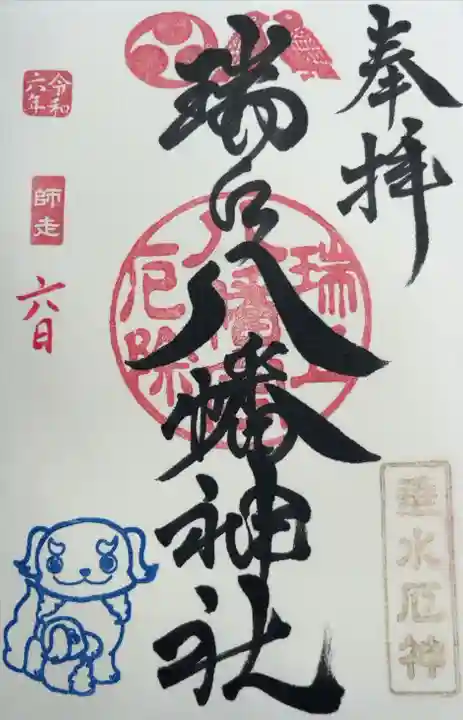 奉拝
瑞丘八幡神社
瑞丘
八幡
厄除
垂水厄神
令和
六年
師走
六日